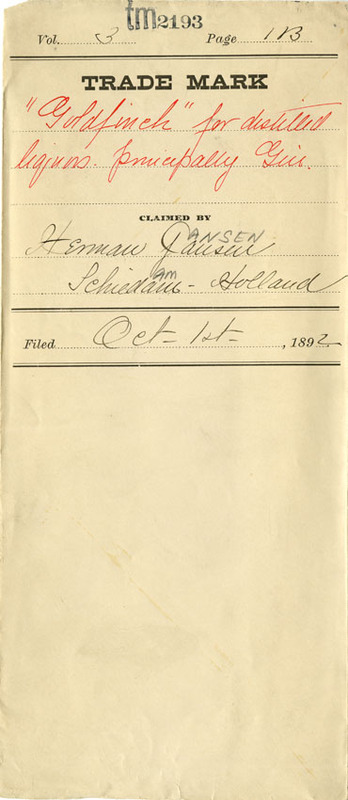 tm2193
Vol. 3 Page 113
TRADE MARK
"Goldfinch" for distilled
liquors. principally Gin.
CLAIMED BY
ANSEN
Herman Jansen
AM
Schiedam - Holland
Filed Oct- 1st- , 1892